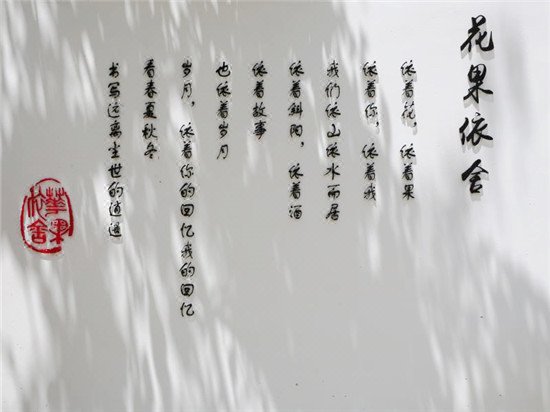 花果依舍
依着花，依着果
依着你，依着我
我们依山依水而居
依着斜阳，依着酒
依着故事
也依着岁月
岁月，依着你的回忆我的回忆
看春夏秋冬
书写远离尘世的逍遥
華果
依舍